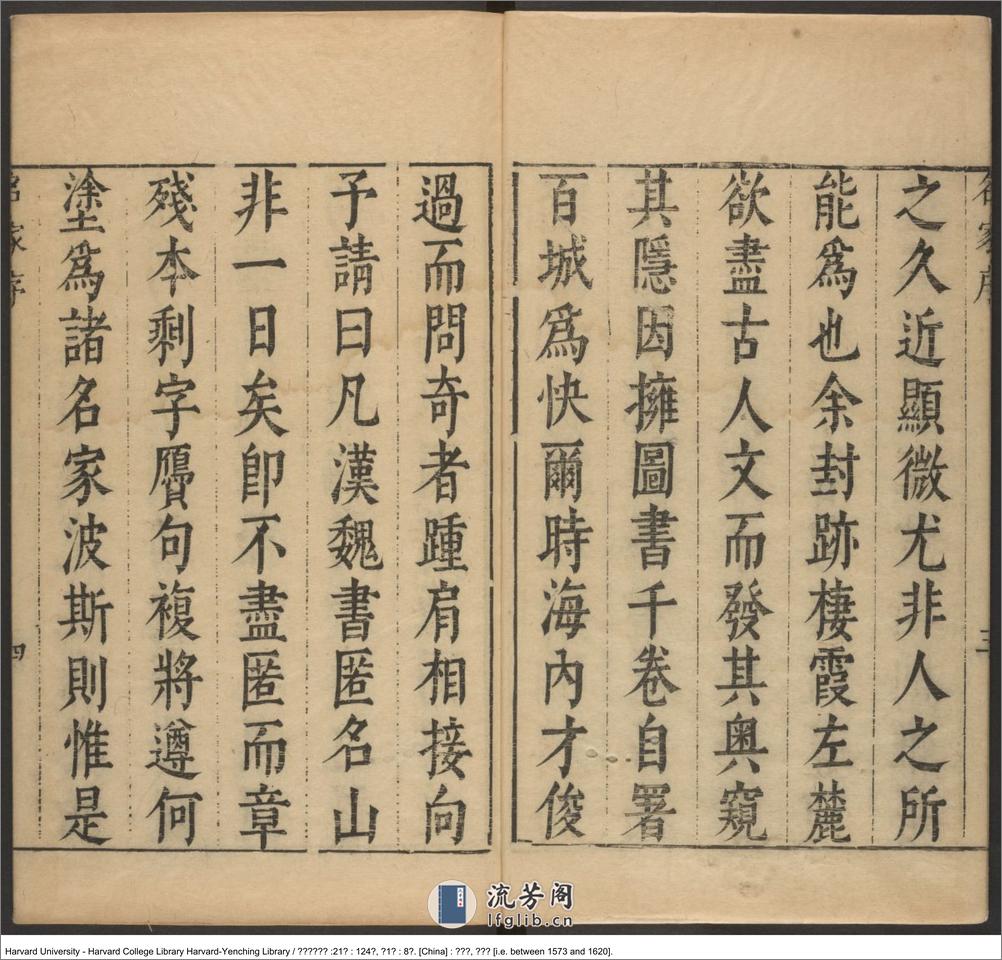 名家序
三
之久近顯微尤非人之所
能爲也余封跡棲霞左麓
欲盡古人文而發其奧窺
其隱因擁圖書千卷自署
百城爲快爾時海內才俊
過而問奇者踵肩相接向
予請曰凡漢魏書匿名山
非一日矣卽不盡匿而章
殘本剩字贋句複將遵何
塗爲諸名家波斯則惟是
名家序
四
流芳阁
lfglib.cn
Harvard University - Harvard College Library Harvard-Yenching Library / ?????? :21? : 124?, ?1? : 8?. [China] : ???, ??? [i.e. between 1573 and 1620].